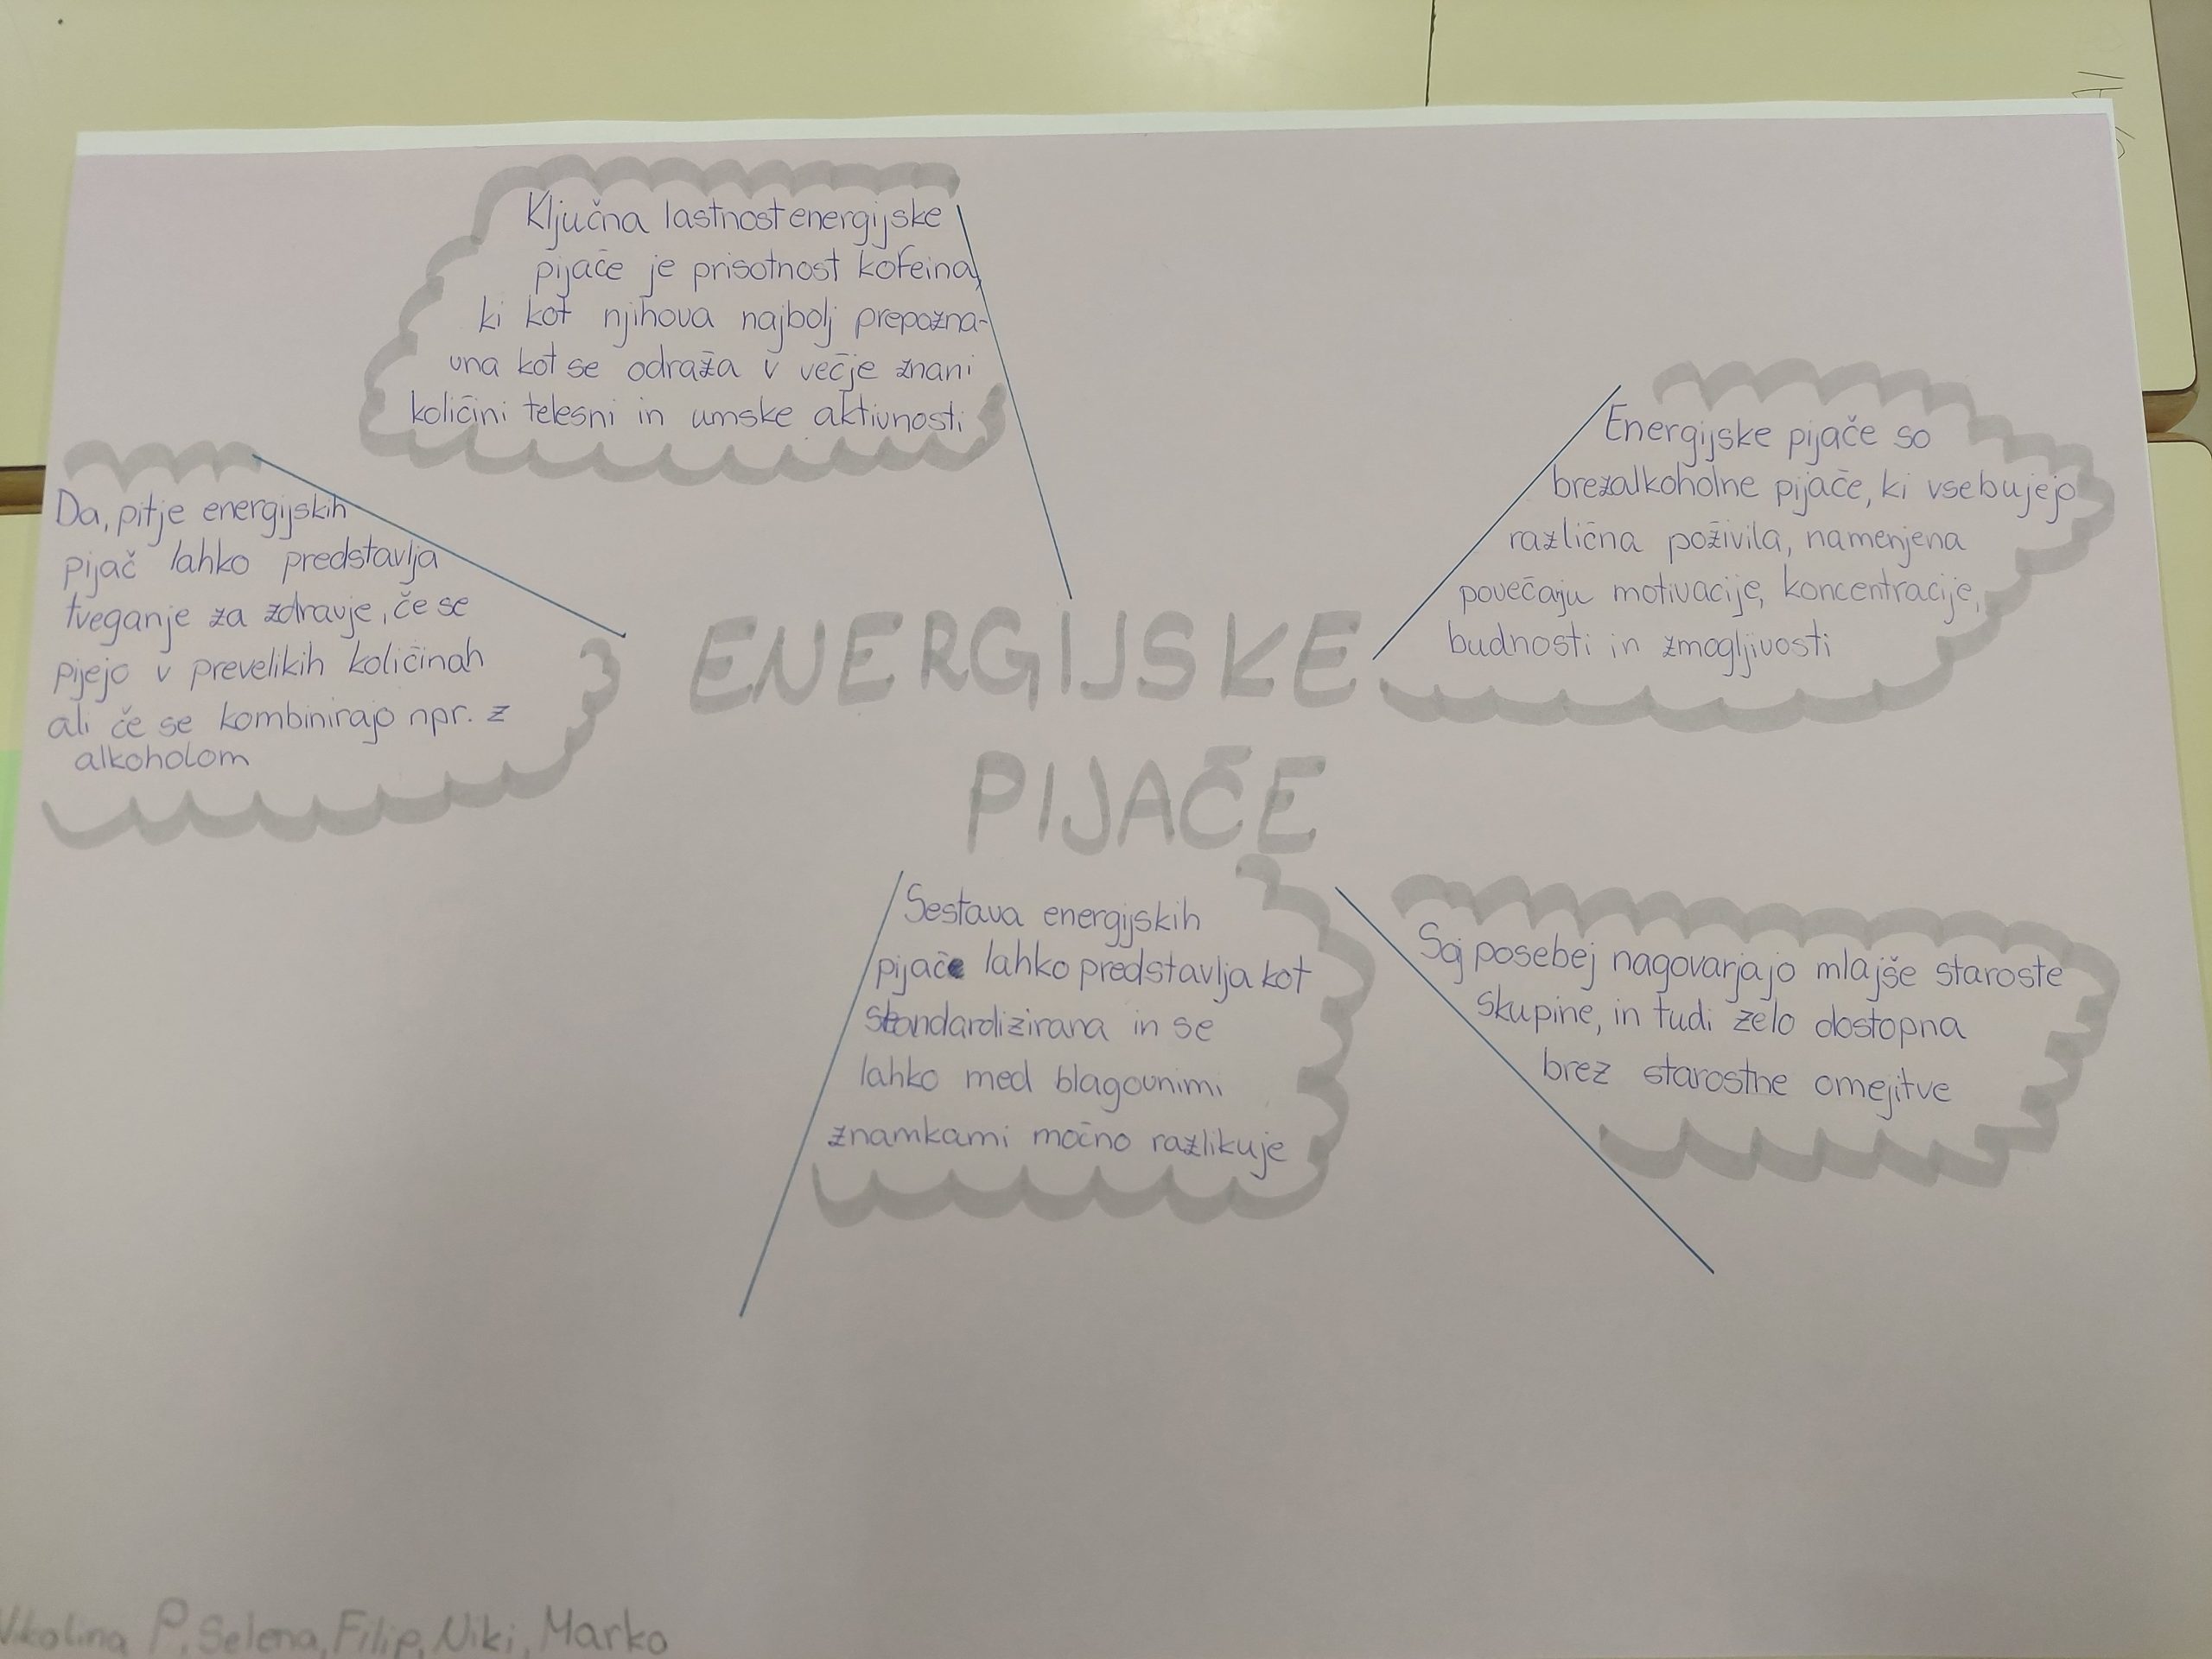 Ključna lastnost energijske
pijače je prisotnost kofeina,
ki kot njihova najbolj prepozna-
vna kot se odraža v večje znani
količini telesni in umske aktivnosti
Energijske pijače so
brezalkoholne pijače, ki vsebujejo
različna poživila, namenjena
povečaju motivacije, koncentracije,
budnosti in zmogljivosti
Da, pitje energijskih
pijač lahko predstavlja
tveganje za zdravje, če se
pijejo v prevelikih količinah
ali če se kombinirajo npr. z
alkoholom
ENERGIJSKE
PIJAČE
Sestava energijskih
pijače lahko predstavlja kot
standardizirana in se
lahko med blagovnimi
znamkami močno razlikuje
Saj posebej nagovarjajo mlajše staroste
skupine, in tudi zelo dostopna
brez starostne omejitve
Nikolina P, Selena, Filip, Niki, Marko